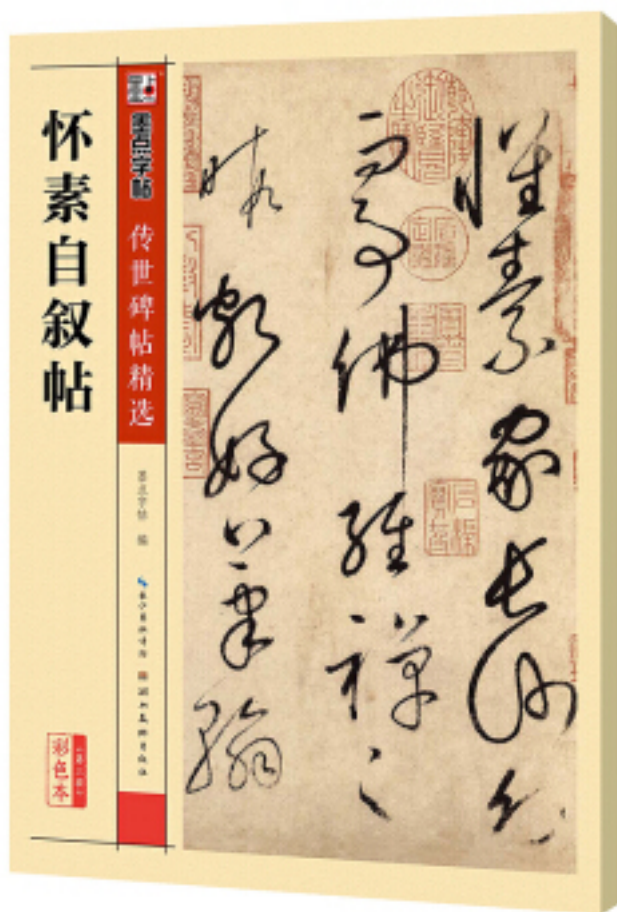 怀素自叙帖
墨点字帖
传世碑帖精选
墨点字帖 编
长江出版传媒
湖北美术出版社
彩色本
懷素家長沙幼
而事佛經禪之
暇頗好筆翰